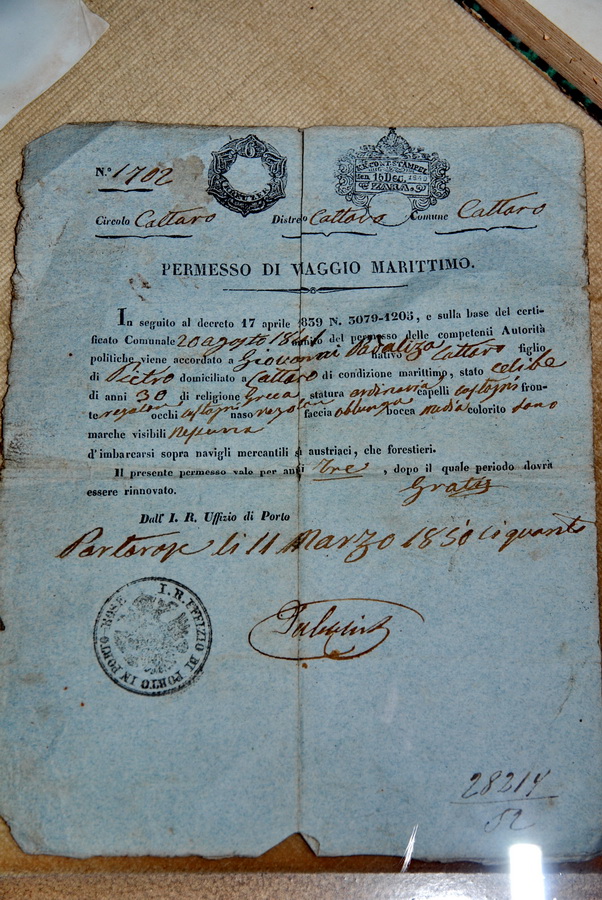 N.º 1702
6
CARANTANI
EX CONT. STAMPEL
den 15 Dec. 1848
ZARA.
Circolo Cattaro Distre o Cattaro Comune Cattaro
PERMESSO DI VIAGGIO MARITTIMO.
In seguito al decreto 17 aprile 1839 N. 3079-1205, e sulla base del certi-
ficato Comunale 20 agosto del permesso delle competenti Autorità
politiche viene accordato a Giovanni nativo Cattaro figlio
di Pietro domiciliato a Cattaro di condizione marittimo, stato celibe
di anni 30 di religione Greca statura ordinaria capelli castagni fron-
te regolar occhi castagni naso regolar faccia oblunga bocca media colorito sano
marche visibili Nessuna
d'imbarcarsi sopra navigli mercantili sì austriaci, che forestieri.
Il presente permesso vale per anni Tre , dopo il quale periodo dovrà
essere rinnovato. Gratis
Dall' I. R. Uffizio di Porto
Portorose li 11 Marzo 1850
I. R. UFFIZIO DI PORTO IN PORTO-ROSE
28214
52